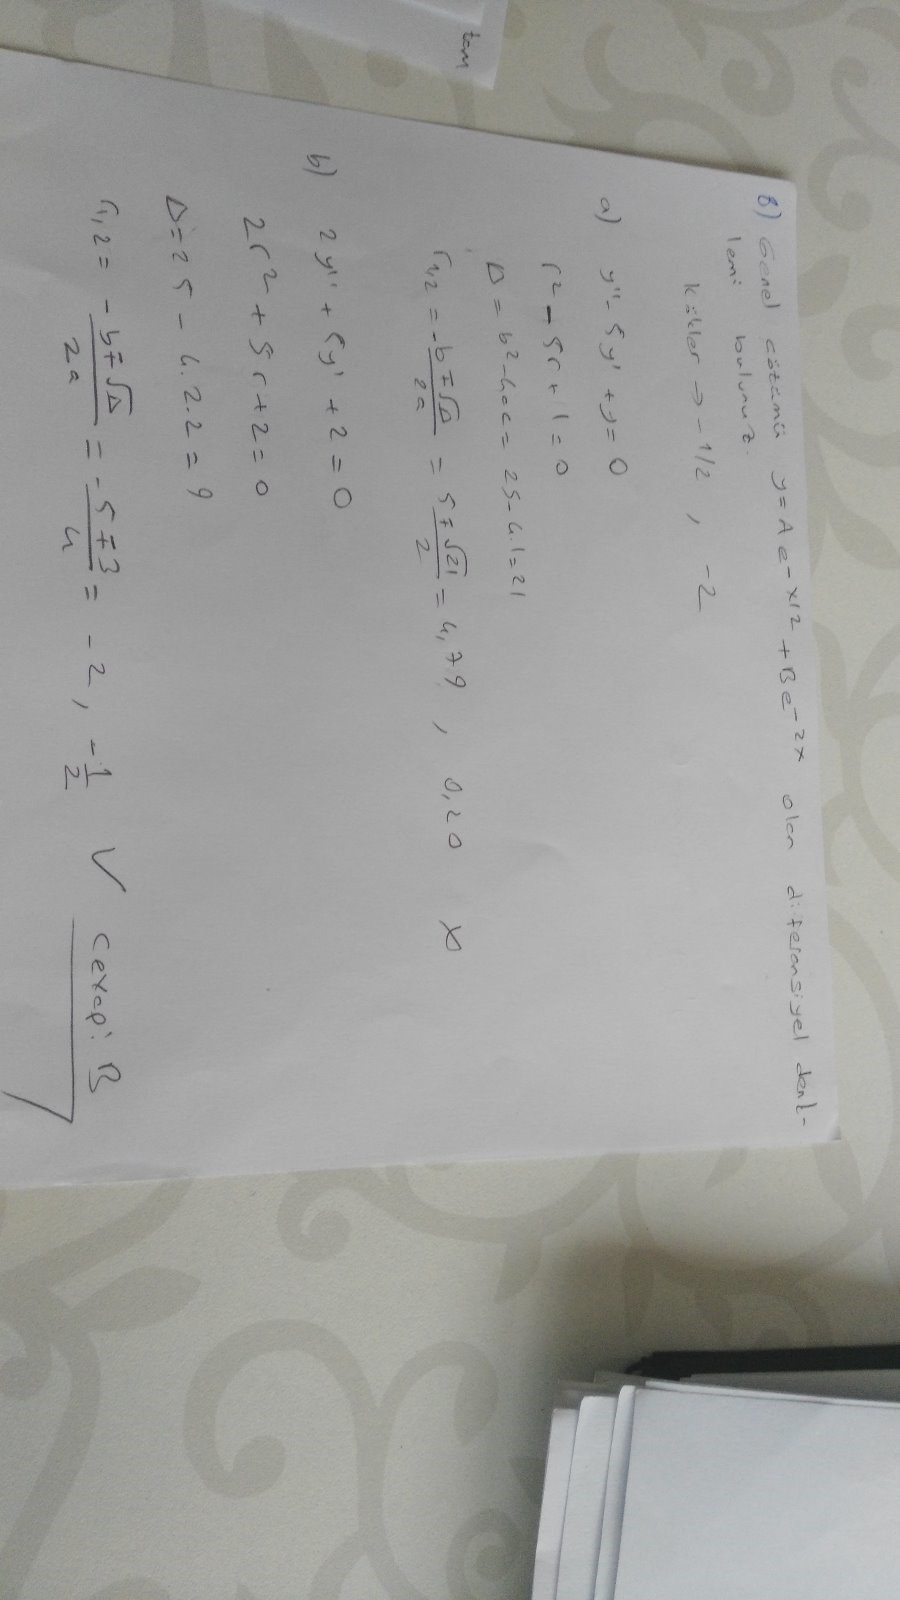 8) Genel çözümü y = A e^-x/2 + B e^-2x olan diferansiyel denk-
lemi bulunuz.
Kökler → -1/2 , -2
a) y'' - 5y' + y = 0
r² - 5r + 1 = 0
Δ = b² - 4ac = 25 - 4.1 = 21
r1,2 = -b ∓ √Δ / 2a = 5 ∓ √21 / 2 = 4,79 , 0,20 x
tam
b) 2y'' + 5y' + 2 = 0
2r² + 5r + 2 = 0
Δ = 25 - 4.2.2 = 9
r1,2 = -b ∓ √Δ / 2a = -5 ∓ 3 / 4 = -2 , -1/2 ✓ Cevap: B